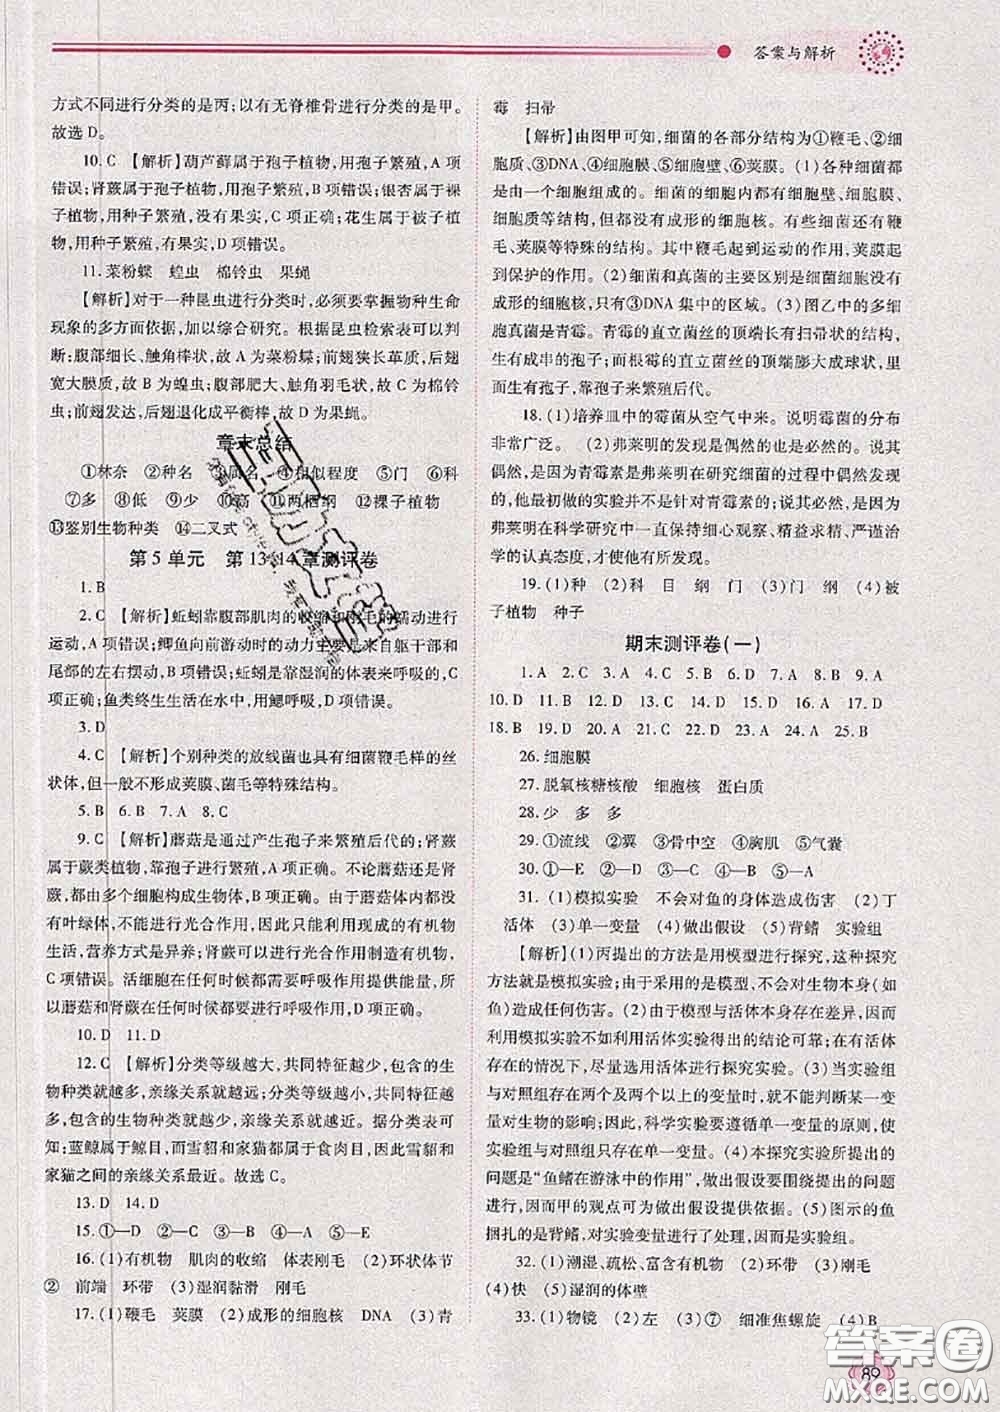 答案与解析
方式不同进行分类的是丙;以有无脊椎骨进行分类的是甲。
故选D。
10. C 【解析】葫芦藓属于孢子植物,用孢子繁殖,A项
错误;肾蕨属于孢子植物,用孢子繁殖,B项错误;银杏属于裸
子植物,用种子繁殖,没有果实,C项正确;花生属于被子植
物,用种子繁殖,有果实,D项错误。
11. 菜粉蝶 蝗虫 棉铃虫 果蝇
【解析】对于一种昆虫进行分类时,必须要掌握物种生命
现象的多方面依据,加以综合研究。根据昆虫检索表可以判
断;腹部细长、触角棒状,故A为菜粉蝶;前翅狭长革质,后翅
宽大膜质,故B为蝗虫;腹部肥大、触角羽毛状,故C为棉铃
虫;前翅发达,后翅退化成平衡棒,故D为果蝇。
章末总结
①林奈 ②种名 ③属名 ④相似程度 ⑤门 ⑥科
⑦多 ⑧低 ⑨少 ⑩高 ⑪两栖纲 ⑫裸子植物
⑬鉴别生物种类 ⑭二叉式
第5单元 第13、14章测评卷
1. B
2. C 【解析】蚯蚓靠腹部肌肉的收缩和刚毛的蠕动进行
运动,A项错误;鲫鱼向前游动时的动力主要来自躯干部和
尾部的左右摆动,B项错误;蚯蚓是靠湿润的体表来呼吸的,C
项正确;鱼类终生生活在水中,用鳃呼吸,D项错误。
3. D
4. C 【解析】个别种类的放线菌也具有细菌鞭毛样的丝
状体,但一般不形成荚膜、菌毛等特殊结构。
5. B 6. B 7. A 8. C
9. C 【解析】蘑菇是通过产生孢子来繁殖后代的;肾蕨
属于蕨类植物,靠孢子进行繁殖,A项正确。不论蘑菇还是肾
蕨,都由多个细胞构成生物体,B项正确。由于蘑菇细胞内没
有叶绿体,不能进行光合作用,因此只能利用现成的有机物
生活,营养方式是异养;肾蕨可以进行光合作用制造有机物,
C项错误。活细胞在任何时候都要进行呼吸作用,D项正确,所
以蘑菇和肾蕨在任何时候都要进行呼吸作用。
10. D 11. D
12. C 【解析】分类等级越大,共同特征越少,包含的生
物种类就越多,亲缘关系就越远;分类等级越小,共同特征越
多,包含的生物种类就越少,亲缘关系越近。据分类表可
知:蓝鲸属于鲸目,而雪貂和家猫都属于食肉目,因此雪貂和
家猫之间的亲缘关系最近。故选C。
13. D 14. D
15. ①—D ②—C ③—B ④—A ⑤—E
16. (1)有机物 肌肉的收缩 体表刚毛 (2)环状体节
② 前端 环带 (3)湿润黏滑 刚毛
17. (1)鞭毛 荚膜 (2)成形的细胞核 DNA (3)青
霉 扫帚
【解析】由图甲可知,细菌的各部分结构为①鞭毛、②细
胞质、③DNA、④细胞膜、⑤细胞壁、⑥荚膜。(1)各种细菌都
是由一个细胞组成的。细菌的细胞内都有细胞壁、细胞膜、
细胞质等结构,但都没有成形的细胞核。有些细菌还有鞭
毛、荚膜等特殊的结构。其中鞭毛起到运动的作用,荚膜起
到保护的作用。(2)细菌和真菌的主要区别是细菌细胞没有
成形的细胞核,只有③DNA集中的区域。(3)图乙中的多细
胞真菌是青霉。青霉的直立菌丝的顶端长有扫帚状的结构,
生有成串的孢子;而根霉的直立菌丝的顶端膨大成球状,里
面生有孢子,靠孢子来繁殖后代。
18. (1)培养皿中的霉菌从空气中来。说明霉菌的分布
非常广泛。 (2)弗莱明的发现是偶然的也是必然的。说其
偶然,是因为青霉素是弗莱明在研究细菌的过程中偶然发现
的,他最初做的实验并不是针对青霉素的;说其必然,是因为
弗莱明在科学研究中一直保持细心观察、精益求精、严谨治
学的认真态度,才使他有所发现。
19. (1)种 (2)科 目 纲 门 (3)门 纲 (4)被
子植物 种子
期末测评卷(一)
1. A 2. C 3. A 4. C 5. B 6. D 7. A 8. B 9. A
10. D 11. B 12. B 13. D 14. D 15. D 16. A 17. D
18. B 19. D 20. A 21. C 22. D 23. D 24. A 25. B
26. 细胞膜
27. 脱氧核糖核酸 细胞核 蛋白质
28. 少 多 多
29. ①流线 ②翼 ③骨中空 ④胸肌 ⑤气囊
30. ①—E ②—D ③—B ④—C ⑤—A
31. (1)模拟实验 不会对鱼的身体造成伤害 (2)丁
活体 (3)单一变量 (4)做出假设 (5)背鳍 实验组
【解析】(1)丙提出的方法是用模型进行探究,这种探究
方法就是模拟实验;由于采用的是模型,不会对生物本身(如
鱼)造成任何伤害。(2)由于模型与活体本身存在差异,因而
利用模拟实验不如利用活体实验得出的结论可靠;在有活体
存在的情况下,尽量选用活体进行探究实验。(3)当实验组
与对照组存在两个及两个以上的变量时,就不能判断某一变
量对生物的影响;因此,科学实验要遵循单一变量的原则,使
实验组与对照组只存在单一变量。(4)本探究实验所提出的
问题是“鱼鳍在游泳中的作用”,做出假设要围绕提出的问题
进行,因而甲的观点可为做出假设提供依据。(5)图示的鱼
捆扎的是背鳍,对实验变量进行了处理,因而是实验组。
32. (1)潮湿、疏松、富含有机物 (2)环带 (3)刚毛
(4)快 (5)湿润的体壁
33. (1)物镜 (2)左 (3)⑦ 细准焦螺旋 (4)B
89
答案圈
MXQE.COM